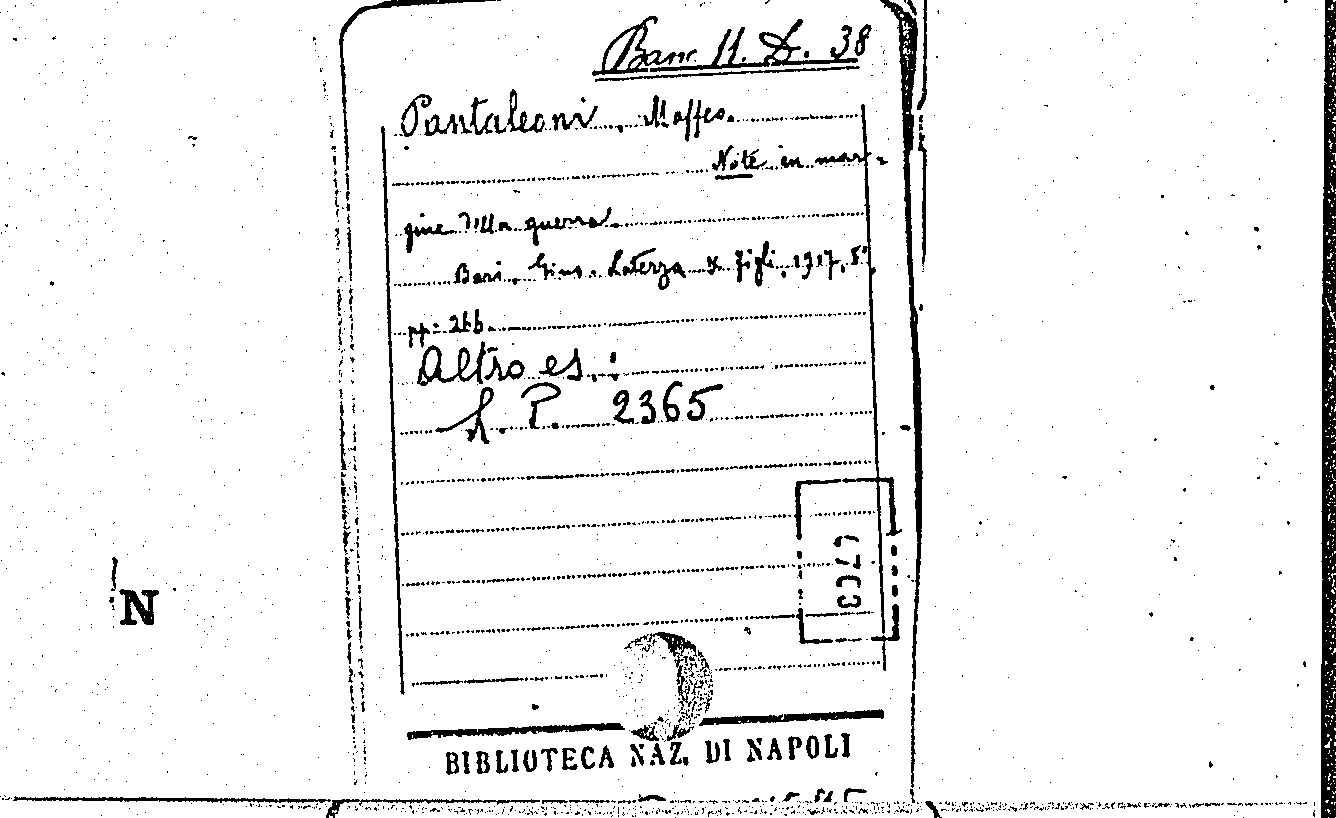 Banc. 11. D. 38
Pantaleoni, Maffeo.
Note in mar-
gine della guerra.
Bari, Gius. Laterza & figli, 1917, 8°,
pp. 266.
Altro es.:
L. P. 2365
N
BIBLIOTECA NAZ. DI NAPOLI